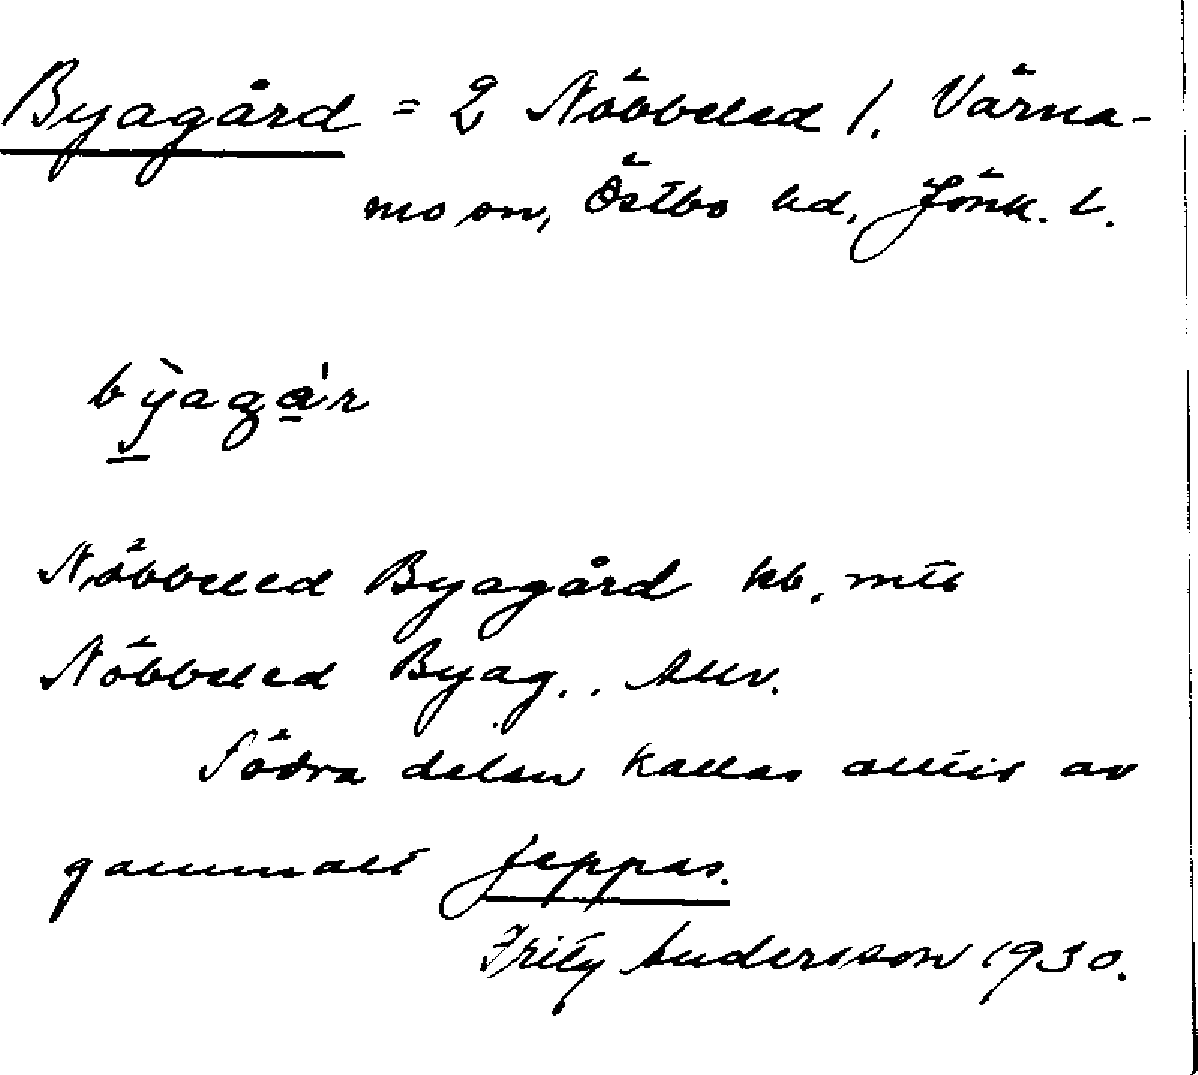 Byagård = 2 Nöbbeled 1. Värna-
mo sn, Östbo hd, Jönk. l.
bỳagá'r
Nöbbeled Byagård kb, mtb
Nöbbeled Byag.
Södra delen kallas alltid av
gammalt Jeppas.
Fritz Andersson 1930.